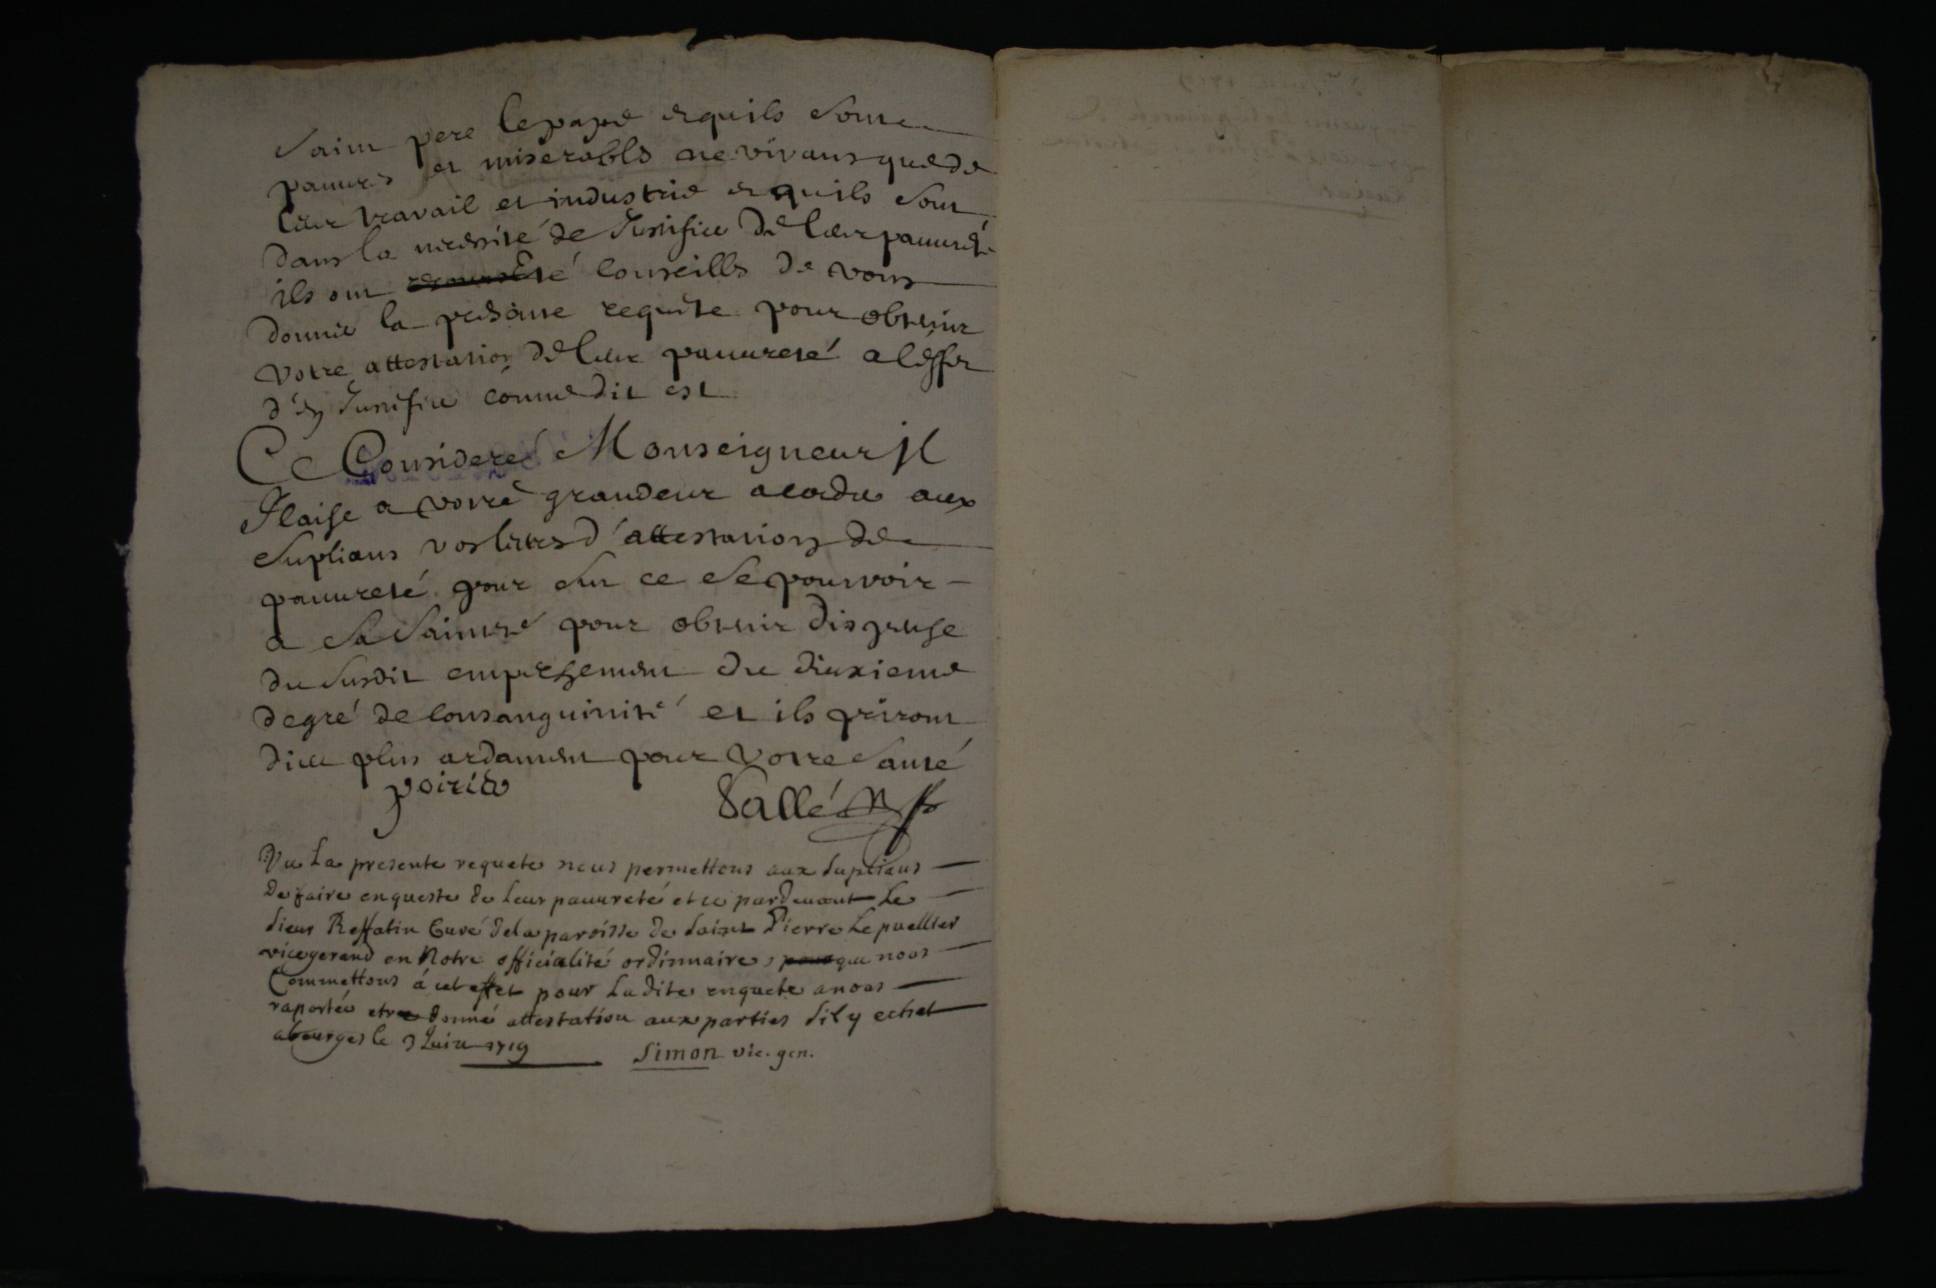 Saint pere le pape et quils sont
pauures et miserables ne vivans que de
leur travail et industrie et quils sont
dans la necessité de Justifier de leur pauureté
ils ont été conseillés de vous
donner la presente requete pour obtenir
votre attestation de leur pauureté a leffet
d'en Justifier comme dit est
Ce Consideré Monseigneur Il
Plaise a votre grandeur acorder aux
suplians vos lettres d'attestation de
pauureté pour sur ce se pourvoir
a sa sainteté pour obtenir dispense
du susdit empeschement du deuxieme
degré de consanguinité et ils priront
dieu plus ardament pour votre santé
poirier Sallé
Vu La presente requete nous permettons aux suplians
de faire enqueste de leur pauureté et ce pardeuant Le
sieur Curé de la paroisse de saint Pierre Le puellier
vicegerand en Notre officialité ordinnaire que nous
Commettons á cet effet pour La dite enquete a nous
raportée etre donné attestation aux parties sil y echet
a bourges le 3 Juin 1719 Simon vic. gen.